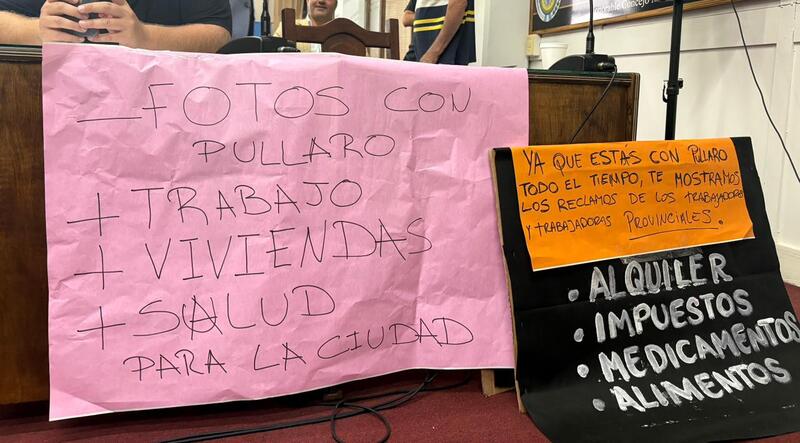 _ FOTOS CON
PULLARO
+ TRABAJO
+ VIVIENDAS
+ SALUD
PARA LA CIUDAD
YA QUE ESTÁS CON PULLARO
TODO EL TIEMPO, TE MOSTRAMOS
LOS RECLAMOS DE LOS TRABAJADORES
Y TRABAJADORAS PROVINCIALES.
• ALQUILER
• IMPUESTOS
• MEDICAMENTOS
• ALIMENTOS
Concejo